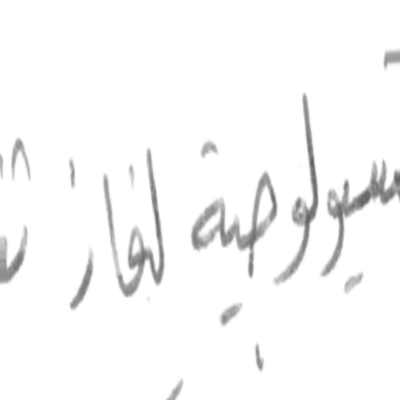 سيولوجية لغاز